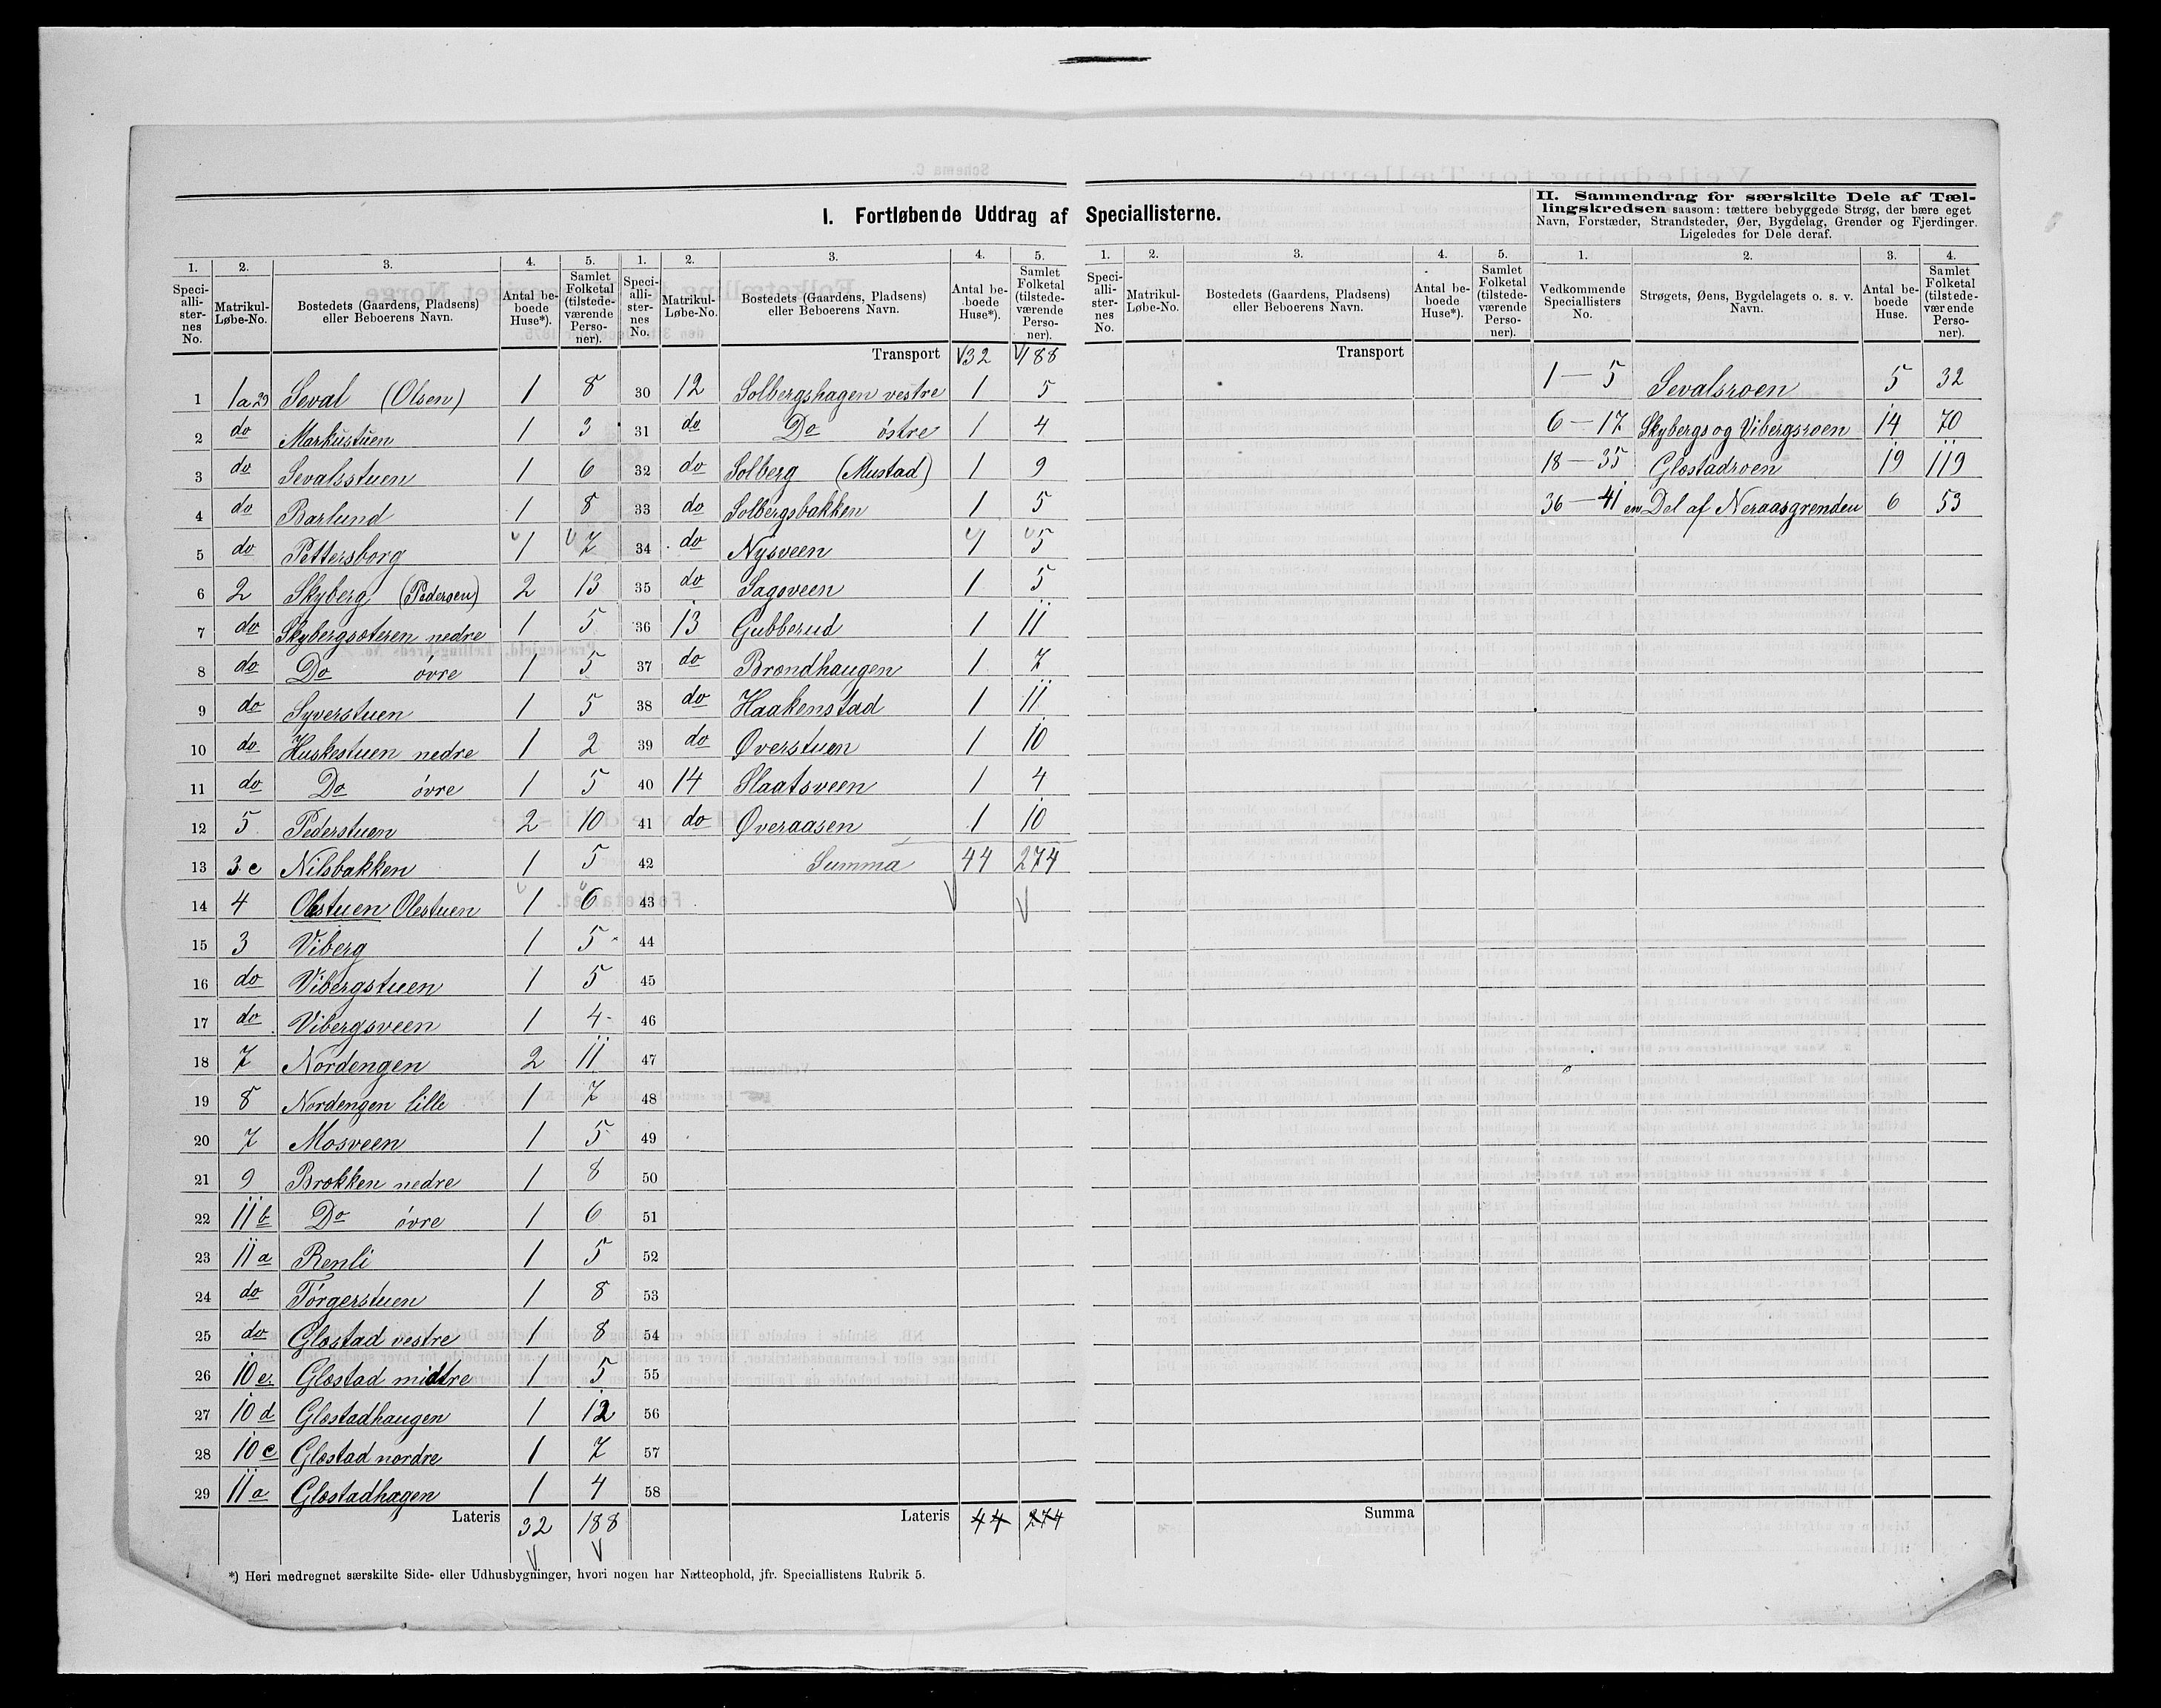 I. Fortløbende Uddrag af Speciallisterne.
II. Sammendrag for særskilte Dele af Tæl-
lingskredsen saasom: tættere bebyggede Strøg, der bære eget
Navn, Forstæder, Strandsteder, Øer, Bygdelag, Grender og Fjerdinger.
Ligeledes for Dele deraf.
1. 2. 3. 4. 5. 1. 2. 3. 4. 5. 1. 2. 3. 4. 5. 1. 2. 3. 4.
Speci-alli-ster-nes No. Matrikul-Løbe-No. Bostedets (Gaardens, Pladsens) eller Beboerens Navn. Antal be-boede Huse*). Samlet Folketal (tilstede-værende Perso-ner).
Speci-alli-ster-nes No. Matrikul-Løbe-No. Bostedets (Gaardens, Pladsens) eller Beboerens Navn. Antal be-boede Huse*). Samlet Folketal (tilstede-værende Perso-ner).
Speci-alli-ster-nes No. Matrikul-Løbe-No. Bostedets (Gaardens, Pladsens) eller Beboerens Navn. Antal be-boede Huse*). Samlet Folketal (tilstede-værende Perso-ner).
Vedkommende Speciallisters No. Strøgets, Øens, Bygdelagets o. s. v. Navn. Antal be-boede Huse. Samlet Folketal (tilstede-værende Perso-ner).
1 1a29 Seval (Olsen) 1 8
2 do Markustuen 1 3
3 do Sevalsstuen 1 6
4 do Barlund 1 8
5 do Pettersborg 1 7
6 2 Skyberg (Pedersen) 2 13
7 do Skybergsæteren nedre 1 5
8 do Do øvre 1 5
9 do Syverstuen 1 5
10 do Huskestuen nedre 1 2
11 do Do øvre 1 5
12 5 Pederstuen 2 10
13 3c Nilsbakken 1 5
14 4 Olestuen Olestuen 1 6
15 3 Viberg 1 5
16 do Vibergstuen 1 5
17 do Vibergsveen 1 4
18 7 Nordengen 2 11
19 8 Nordengen lille 1 7
20 7 Mosveen 1 5
21 9 Brækken nedre 1 8
22 11b Do øvre 1 6
23 11a Renli 1 5
24 do Torgerstuen 1 8
25 do Glæstad vestre 1 8
26 10e. Glæstad midtre 1 5
27 10d Glæstadhaugen 1 12
28 10c Glæstad nordre 1 7
29 11a Glæstadhagen 1 4
Lateris 32 188
Transport 32 188
30 12 Solbergshagen vestre 1 5
31 do Do østre 1 4
32 do Solberg (Mustad) 1 9
33 do Solbergsbakken 1 5
34 do Nysveen 1 5
35 do Sagsveen 1 5
36 13 Gubberud 1 11
37 do Brændhaugen 1 7
38 do Haakenstad 1 11
39 do Øverstuen 1 10
40 14 Slaatsveen 1 4
41 do Øveraasen 1 10
42 Summa 44 274
43
44
45
46
47
48
49
50
51
52
53
54
55
56
57
58
Lateris 44 274
Transport
Summa
1—5 Sevalsroen 5 32
6—17 Skybergs og Vibergsroen 14 70
18—35 Glæstadroen 19 119
36—41 en Del af Neraasgrenden 6 53
*) Heri medregnet særskilte Side- eller Udhusbygninger, hvori nogen har Natteophold, jfr. Speciallistens Rubrik 5.